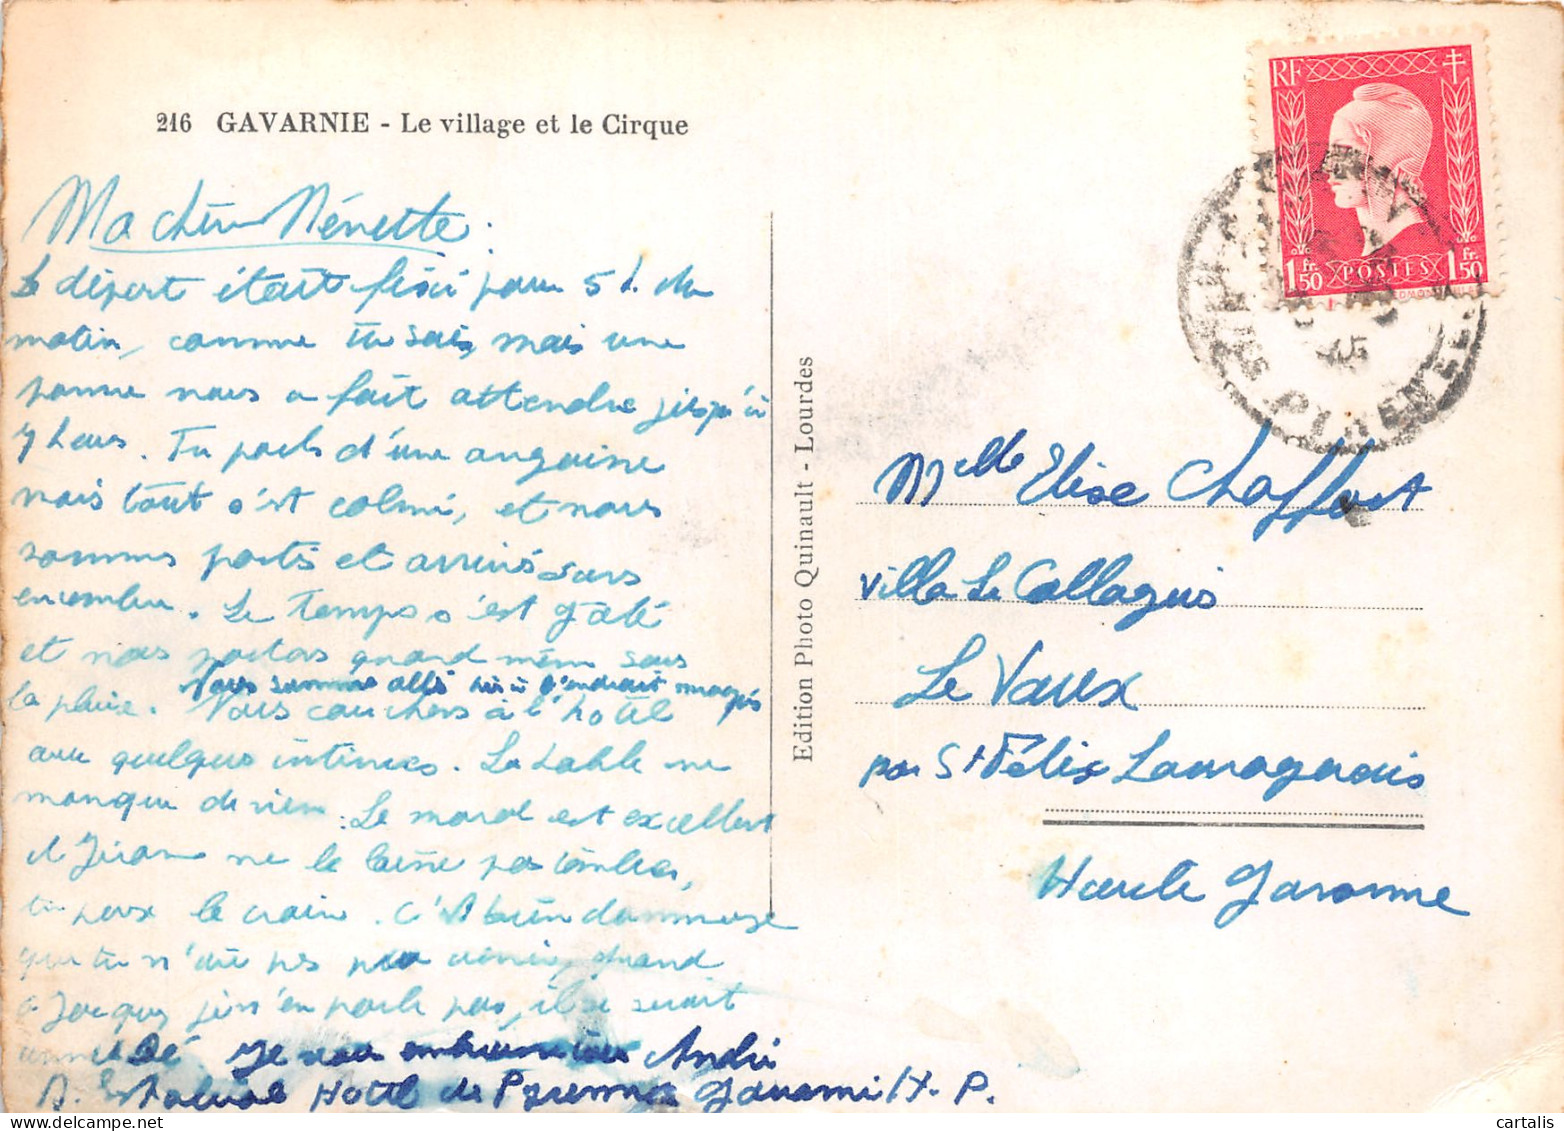 216 GAVARNIE - Le village et le Cirque
RF
1 fr. 50 POSTES 1 fr. 50
HTES PYRENEES
45
Ma chère Nénette :
Le départ était fixé pour 5 h. du
matin, comme tu sais, mais une
panne nous a fait attendre jusqu'à
7 heures. Tu parles d'une angoisse
mais tout s'est calmé, et nous
sommes partis et arrivés sans
encombre. Le temps s'est gâté
et nous partons quand même sous
la pluie. Nous couchons à l'hôtel
Nous sommes allés à l'endroit
avec quelques intimes. La table ne
manque de rien. Le moral est excellent
et ne le laisse pas tomber,
tu peux le croire. C'est bien dommage
que tu n'aies pas pu venir, quand
à Jacques je n'en parle pas, il se serait
Je vous embrasse tous André
A. Hôtel des Pyrénées Gavarnie H. P.
Edition Photo Quinault - Lourdes
Melle Elise Chaffort
Villa Le Collagnis
Le Vaux
par St Félix Lauragnais
Haute Garonne
cartalis
delcampe.net